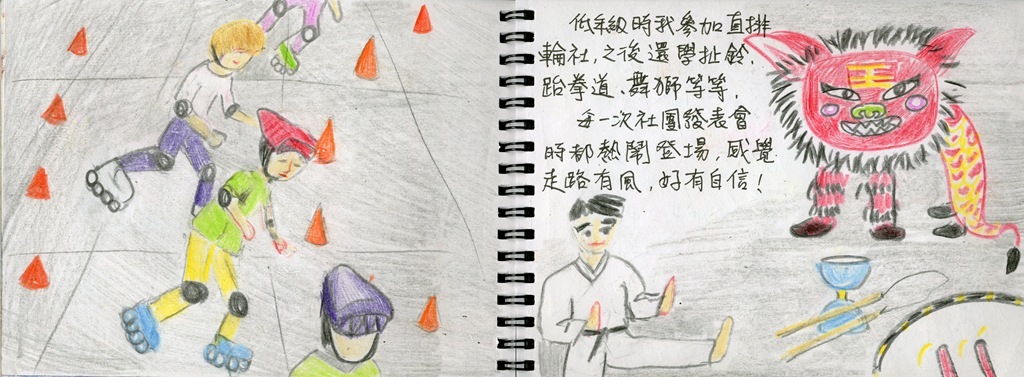 低年級時我參加直排
輪社，之後還學扯鈴、
跆拳道、舞獅等等，
每一次社團發表會
時都熱鬧登場，感覺
走路有風，好有自信！
王